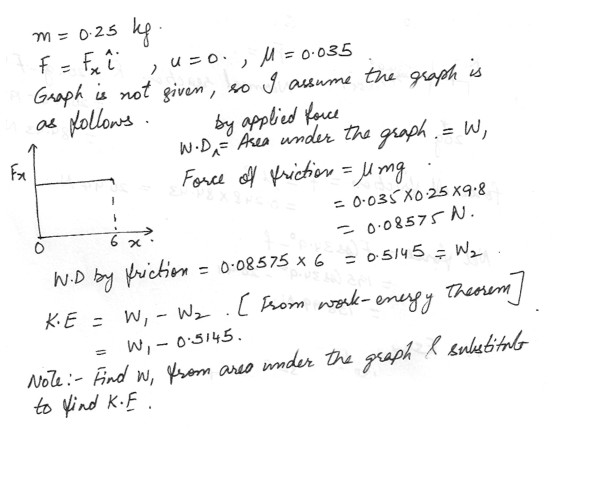 m = 0.25 kg.
F = Fx î , u = 0. , μ = 0.035
Graph is not given, so I assume the graph is
as follows.
by applied force
W.D = Area under the graph. = W₁
Fx
Force of friction = μmg.
= 0.035 X 0.25 X 9.8
= 0.08575 N.
0 6 x.
W.D by friction = 0.08575 x 6 = 0.5145 = W₂.
K.E = W₁ - W₂. [From work-energy theorem]
= W₁ - 0.5145.
Note:- Find W₁ from area under the graph & substitute
to find K.E.